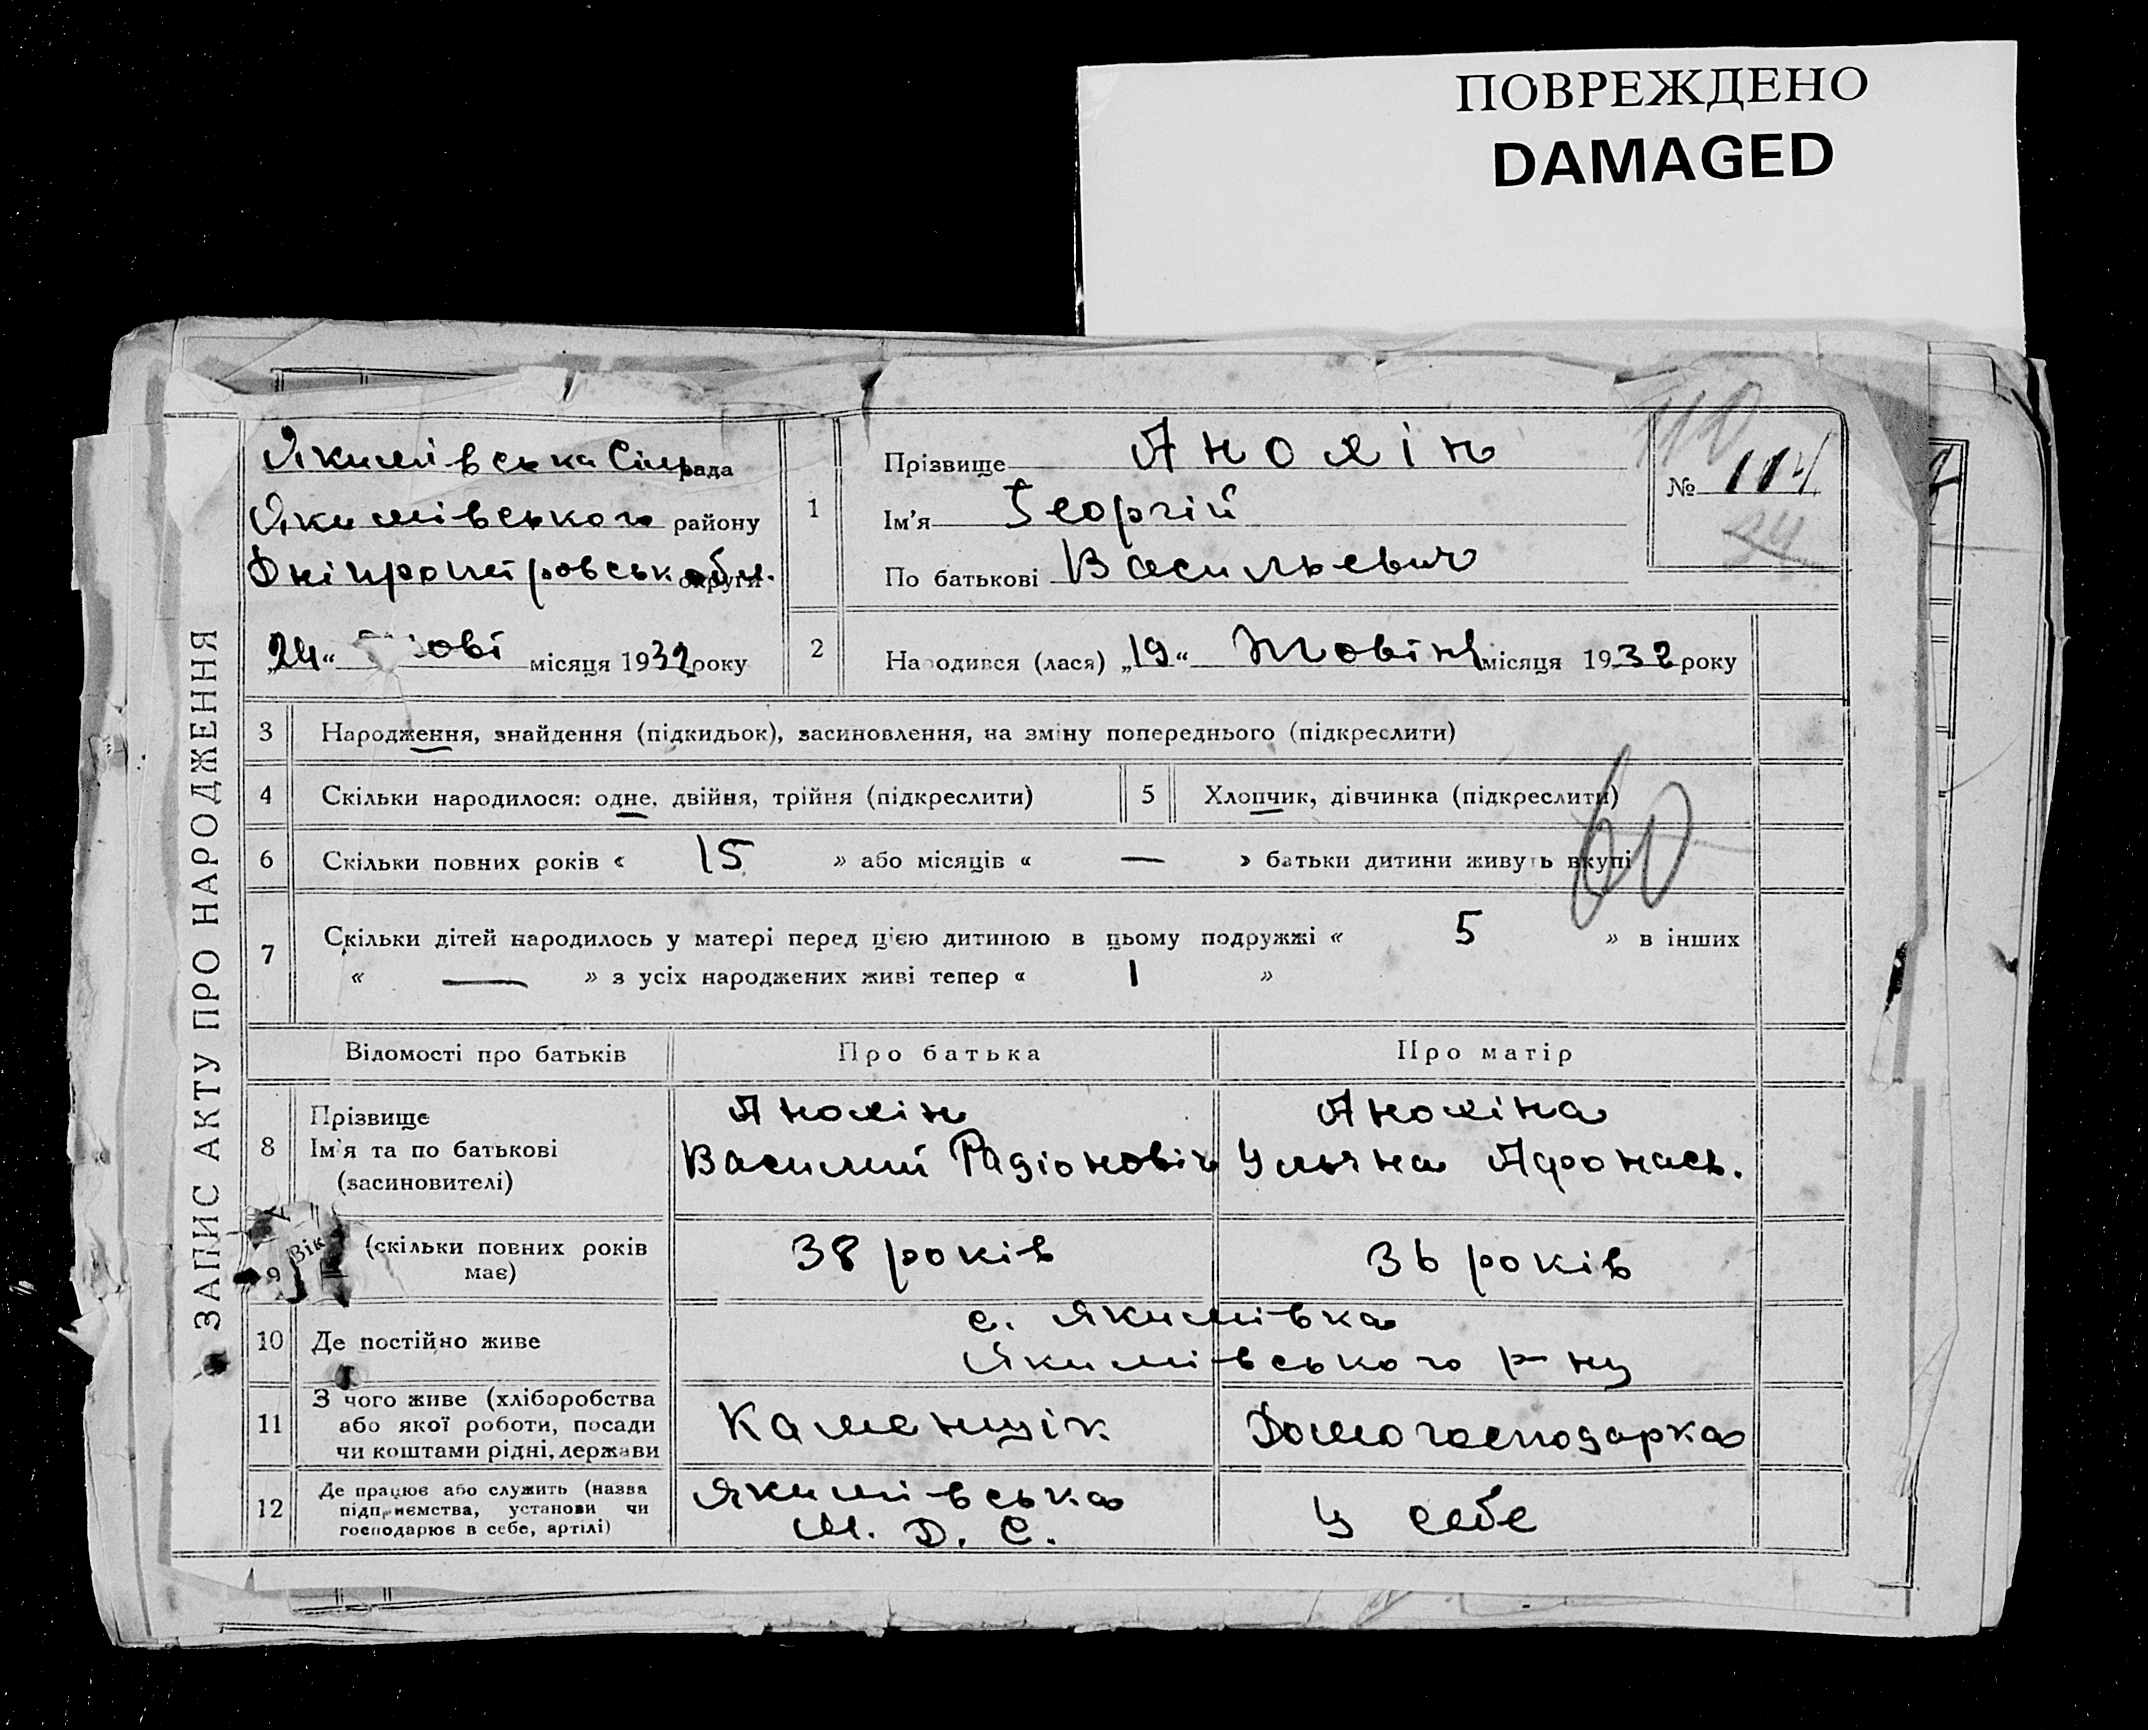 ПОВРЕЖДЕНО
DAMAGED
ЗАПИС АКТУ ПРО НАРОДЖЕННЯ
Якимівська Сільрада
Якимівського району
Дніпропетровськ обл. округи
„24“ місяця 1932 року
1
Прізвище Анохін
Ім'я Георгій
По батькові Васильевич
110
№ 114
2
Народився (лася) „19“ Жовтня місяця 1932 року
3 Народження, знайдення (підкидьок), засиновлення, на зміну попереднього (підкреслити)
4 Скільки народилося: одне, двійня, трійня (підкреслити) 5 Хлопчик, дівчинка (підкреслити)
60
6 Скільки повних років « 15 » або місяців « — » батьки дитини живуть вкупі
7 Скільки дітей народилось у матері перед цією дитиною в цьому подружжі « 5 » в інших
« — » з усіх народжених живі тепер « 1 »
Відомості про батьків Про батька Про матір
8 Прізвище
Ім'я та по батькові
(засиновителі)
Анохін
Василий Радіоновіч
Анохіна
Ульяна Афонась.
9 Вік (скільки повних років
має)
38 років 36 років
10 Де постійно живе
с. Якимівка
Якимівського р-ну
11 З чого живе (хліборобства
або якої роботи, посади
чи коштами рідні, держави
Каменщік Домогосподарка
12 Де працює або служить (назва
підприємства, установи чи
господарює в себе, артілі)
Якимівська
М. Д. С.
У себе